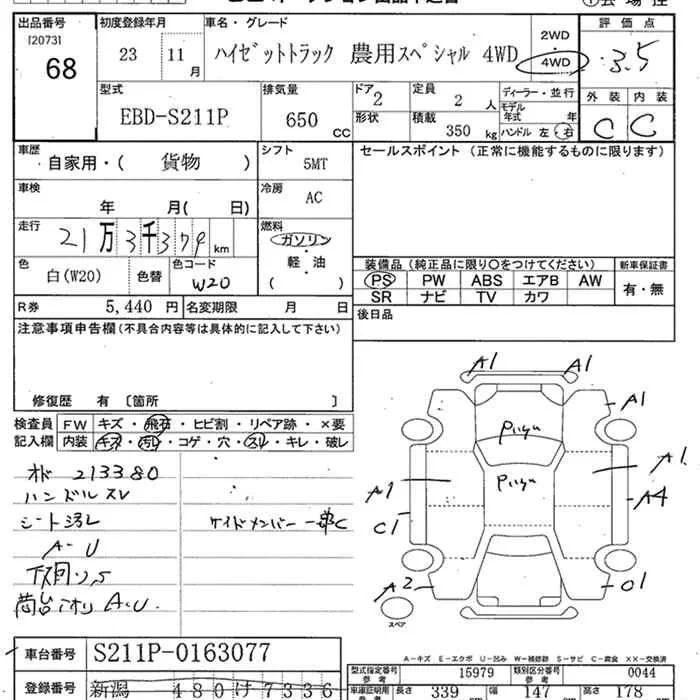 出品番号 初度登録年月 車名・グレード 評価点
[20731
68
23 11月 ハイゼットトラック 農用スペシャル 4WD 2WD 4WD 3.5
型式 排気量 ドア 定員 ディーラー・並行 外装 内装
EBD-S211P 650 CC 2 2人 モデル年式 年 C C
形状 積載 350 kg ハンドル 左・右
車歴 シフト セールスポイント(正常に機能するものに限ります)
自家用・( 貨物 ) 5MT
車検 冷房
年 月( 日) AC
走行 燃料
21万3千379km ガソリン・軽・油
色 色コード 装備品(純正品に限り○をつけてください) 新車保証書
白(W20) 色替 W20 ( ) PS PW ABS エアB AW 有・無
SR ナビ TV カワ
R券 5,440円 名変期限 月 日 後日品
注意事項申告欄(不具合内容等は具体的に記入して下さい)
修復歴 有〔箇所 〕
検査員 FW キズ・飛石・ヒビ割・リペア跡・×要
記入欄 内装 キズ・汚れ・コゲ・穴・スレ・キレ・破レ
213380
ハンドルスレ
シート汚レ
A-U
下回りS
荷台 A.U.
サイドメンバー 一部C
A1 A1
A1
A1
A1
A4
C1
A2
O1
スペア
A-キズ E-エクボ U-凹み W-補修跡 S-サビ C-腐食 XX-交換済
車台番号 S211P-0163077
型式指定番号 参考 15979 類別区分番号 参考 0044
登録番号 新潟 480 け 7336
車庫証明用 参考 長さ 339 幅 147 高さ 178 cm